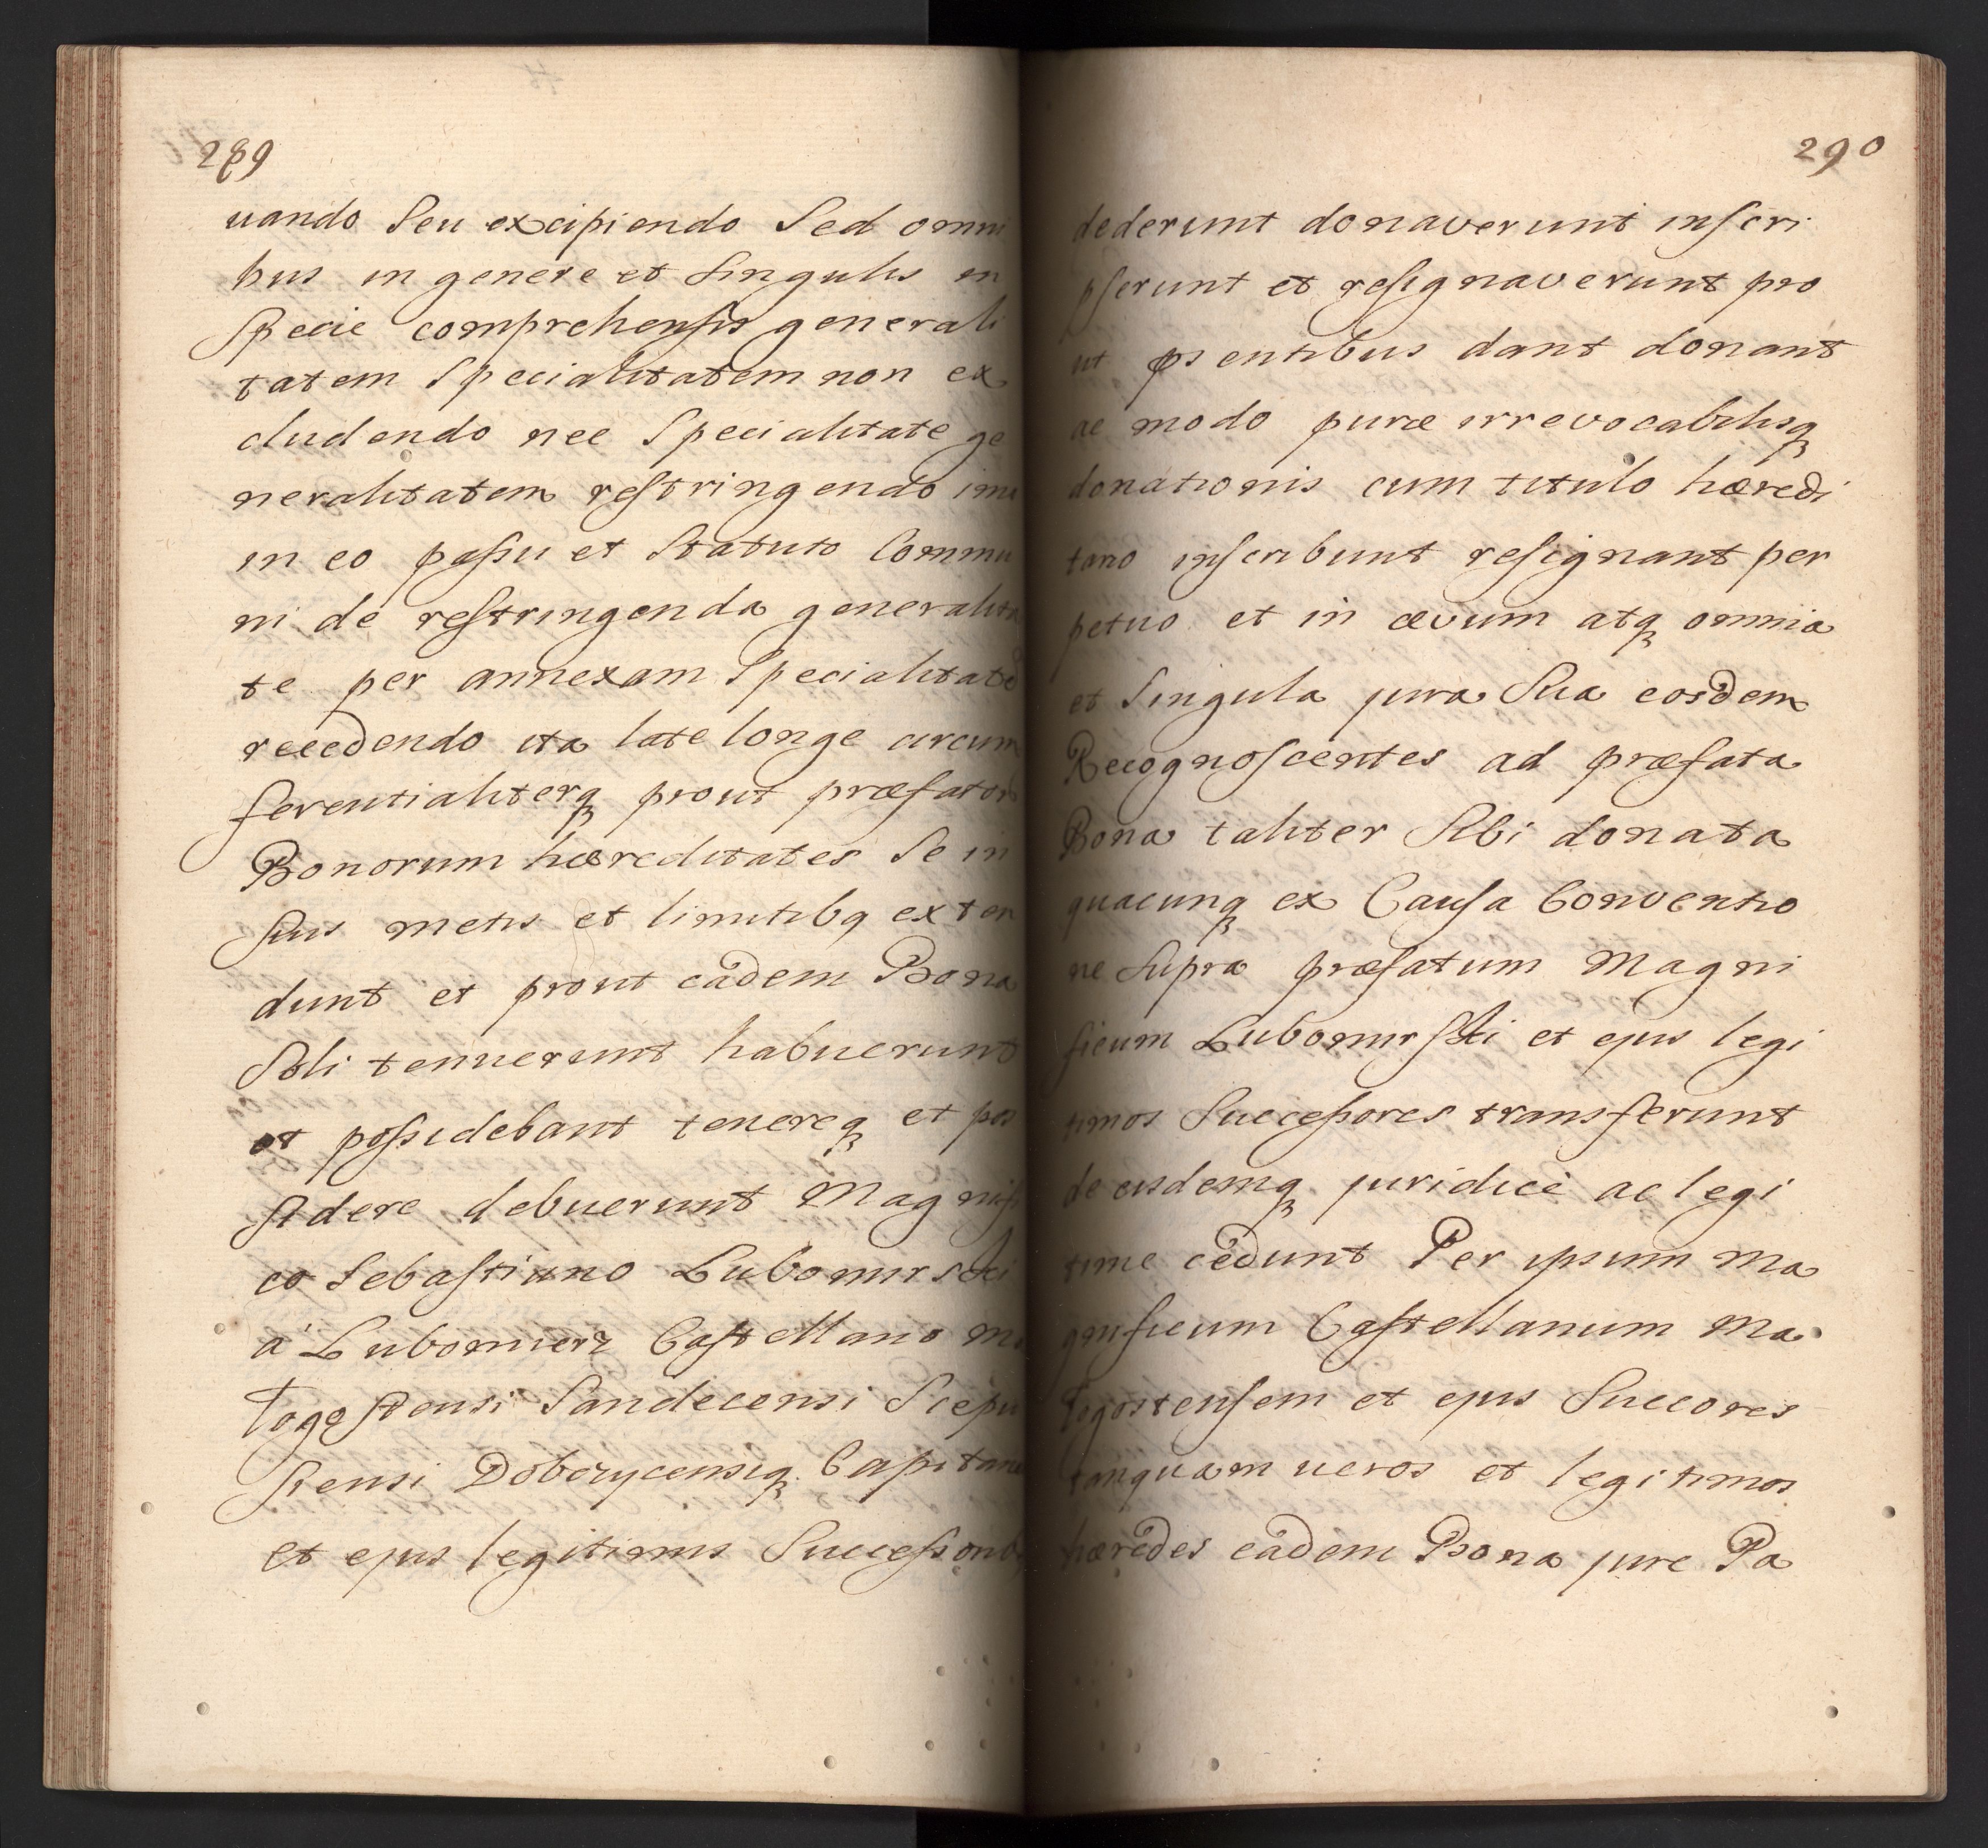 289
uando Seu excipiendo Sed omni
bus in genere et Singulis in
Specie comprehensis generali
tatem Specialitatem non ex
cludendo nec Specialitate ge
neralitatem restringendo imo
in eo passu et Statuto Commu
ni de restringenda generalita
te per annexam Specialitate
recedendo ita late longe circum
ferentialiterq prout præfator
Bonorum hæreditates Se in
Suis metis et limitibq exten
dunt et prout eadem Bona
Soli tenuerunt habuerunt
et possidebant tenereq et pos
sidere debuerunt Magnifi
co Sebastiano Lubomirski
a Lubomierz Castellano Ma
logostensi Sandecensi Scepu
siensi Dobczycensiq Capitaneo
et ejus legitimis Successorib
290
dederunt donaverunt inscri
pserunt et resignaverunt pro
ut psentibus dant donant
ac modo puræ irrevocabilisq
donationis cum titulo hæredi
tario inscribunt resignant per
petuo et in ævum atq omnia
et Singula jura Sua eosdem
Recognoscentes ad præfata
Bona taliter Sibi donata
quacunq ex Causa Conventio
ne Supra præfatum Magni
ficum Lubomirski et ejus legi
timos Successores transferunt
de eisdemq juridice ac legi
time cedunt Per ipsum Ma
gnificum Castellanum Ma
logostensem et ejus Succores
tanquam ueros et legitimos
hæredes eadem Bona jure Pa